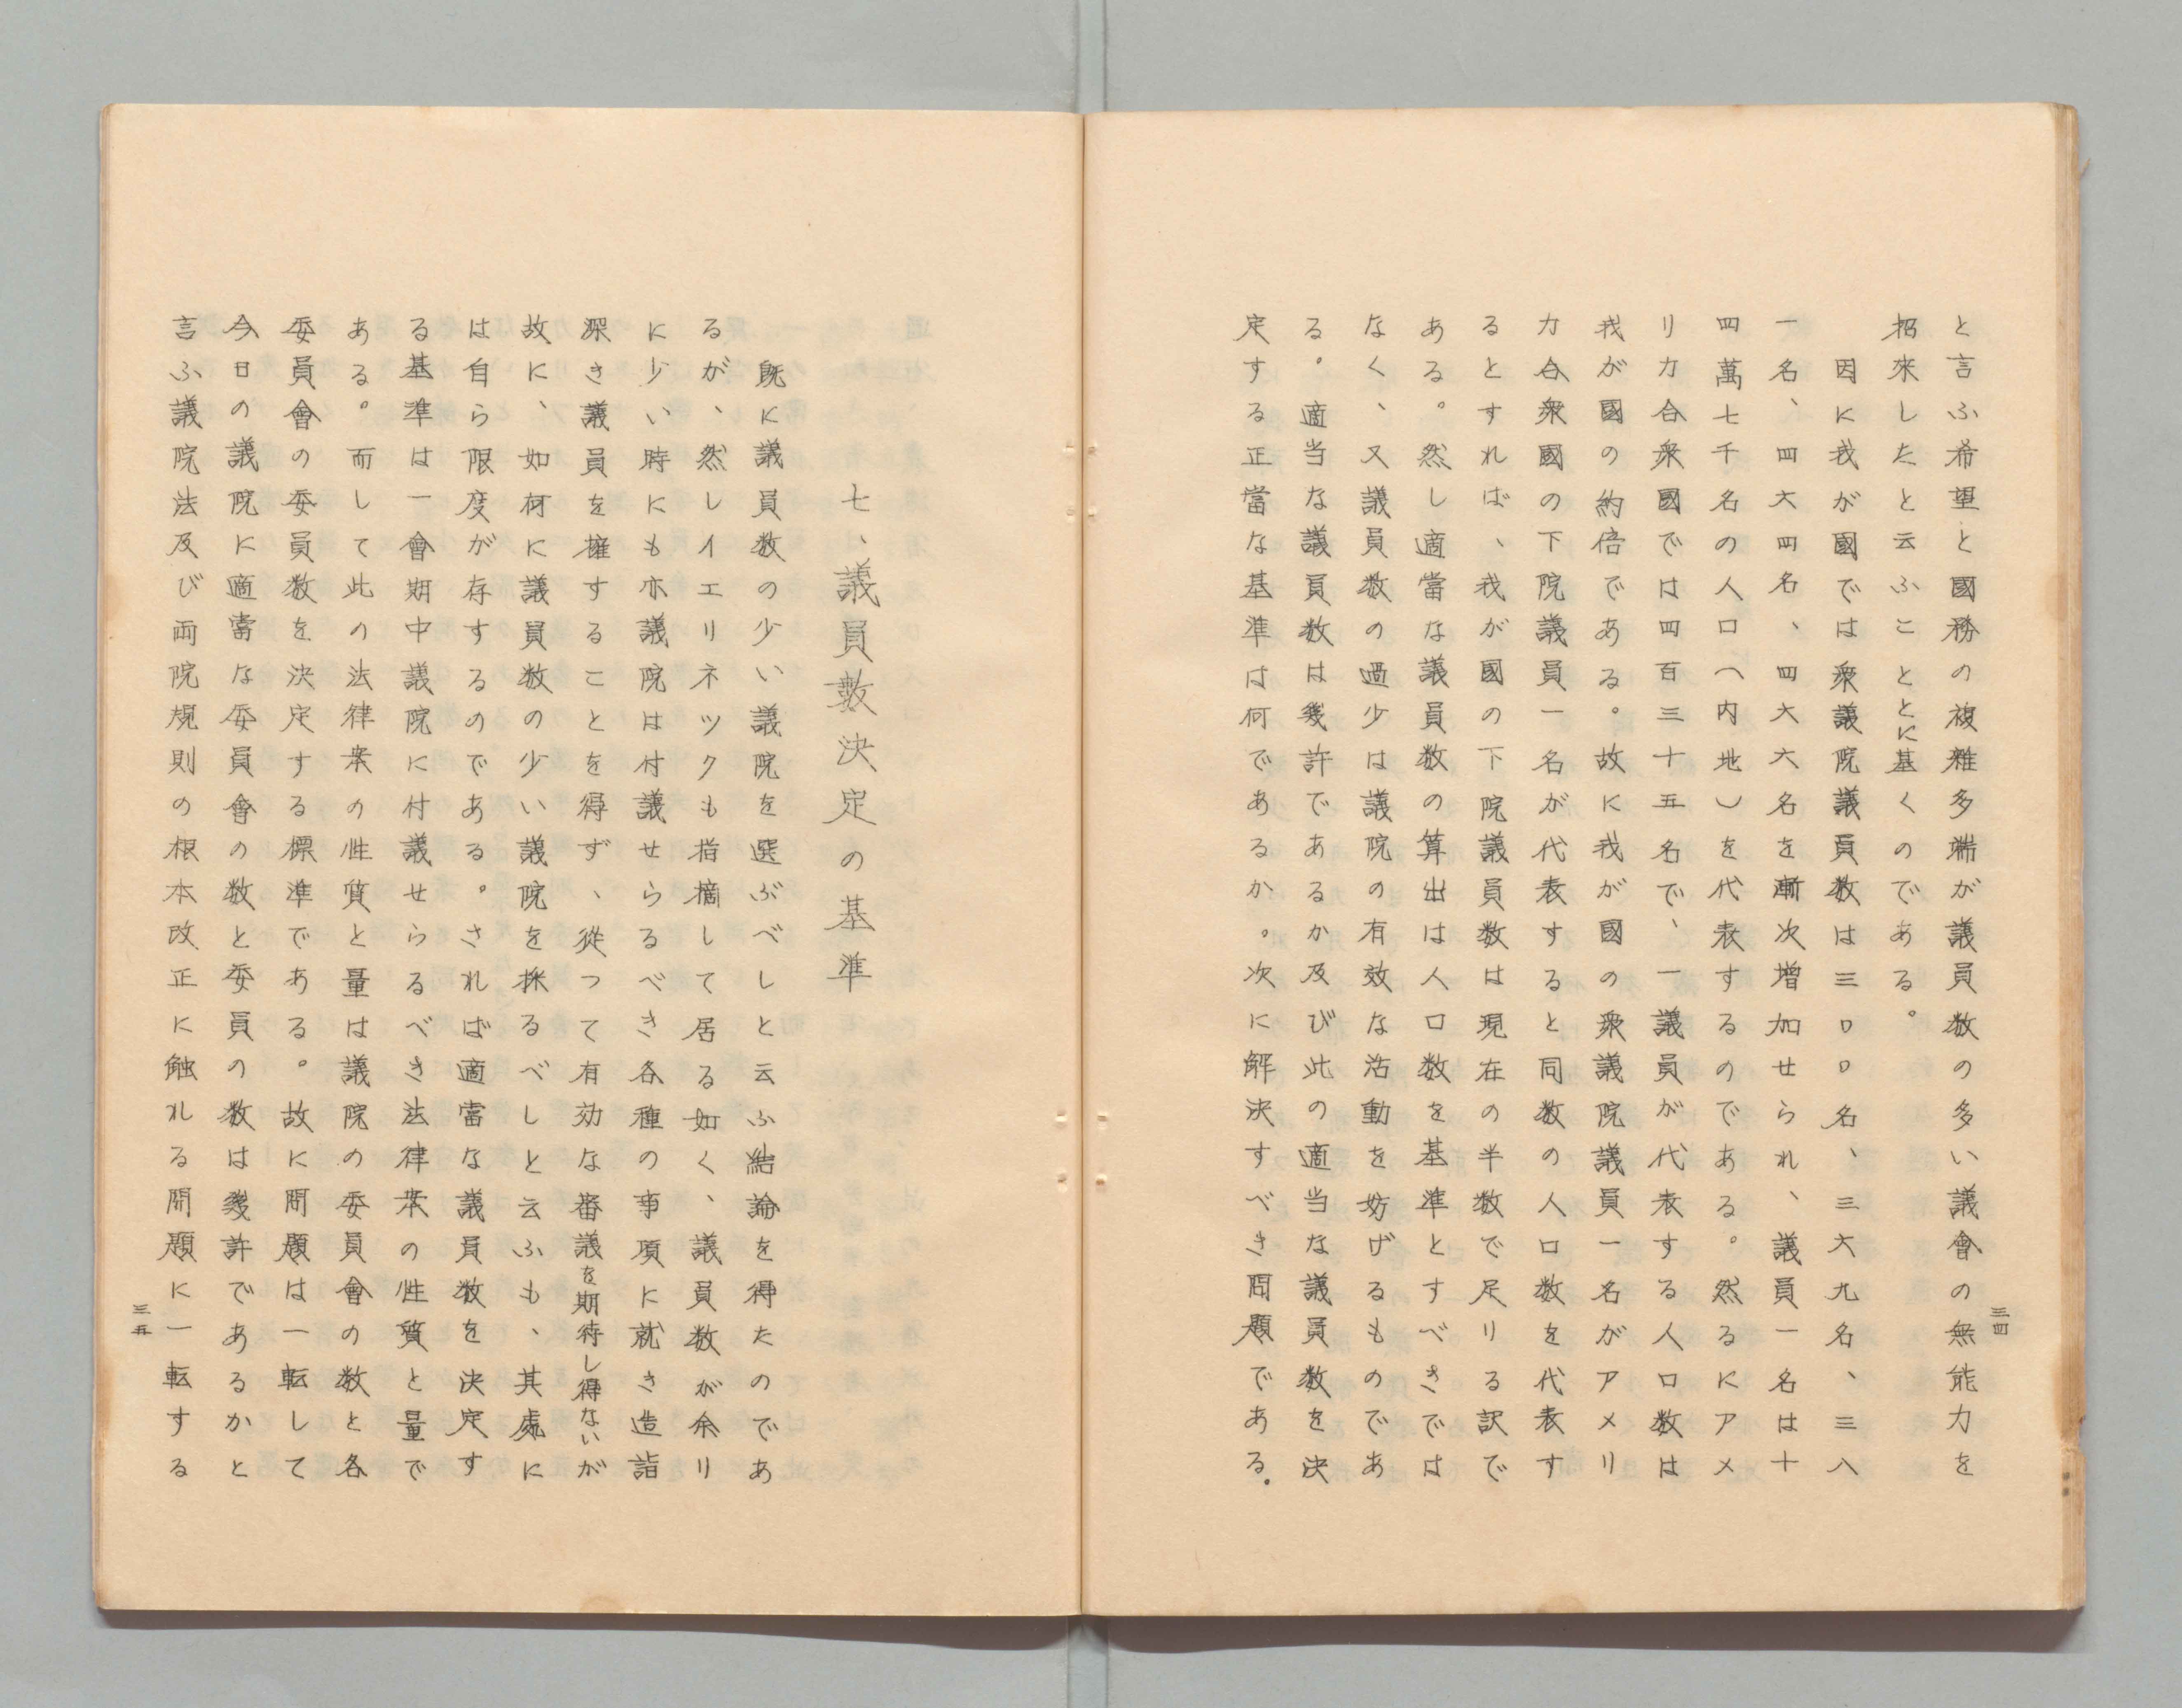 と言ふ希望と國務の複雜多端が議員数の多い議會の無能力を
招来したと云ふこととに基くのである。
因に我が國では衆議院議員数は三〇〇名、三六九名、三八
一名、四六四名、四六六名を漸次増加せられ、議員一名は十
四萬七千名の人口（内地）を代表するのである。然るにアメ
リカ合衆國では四百三十五名で、一議員が代表する人口数は
我が國の約倍である。故に我が國の衆議院議員一名がアメリ
カ合衆國の下院議員一名が代表すると同数の人口数を代表す
るとすれば、我が國の下院議員数は現在の半数で足りる訳で
ある。然し適當な議員数の算出は人口数を基準とすべきでは
なく、又議員数の過少は議院の有效な活動を妨げるものであ
る。適当な議員数は幾許であるか及び此の適当な議員数を決
定する正當な基準は何であるか。次に解決すべき問題である。
三四
七、議員數決定の基準
既に議員数の少い議院を選ぶべしと云ふ結論を得たのであ
るが、然しイエリネツクも指摘して居る如く、議員数が余り
に少い時にも亦議院は付議せらるべき各種の事項に就き造詣
深き議員を擁することを得ず、從つて有効な審議を期待し得ないが
故に、如何に議員数の少い議院を採るべしと云ふも、其處に
は自ら限度が存するのである。されば適當な議員数を決定す
る基準は一會期中議院に付議せらるべき法律案の性質と量で
ある。而して此の法律案の性質と量は議院の委員會の数と各
委員會の委員数を決定する標準である。故に問題は一転して
今日の議院に適當な委員會の数と委員の数は幾許であるかと
言ふ議院法及び両院規則の根本改正に触れる問題に一転する
三五